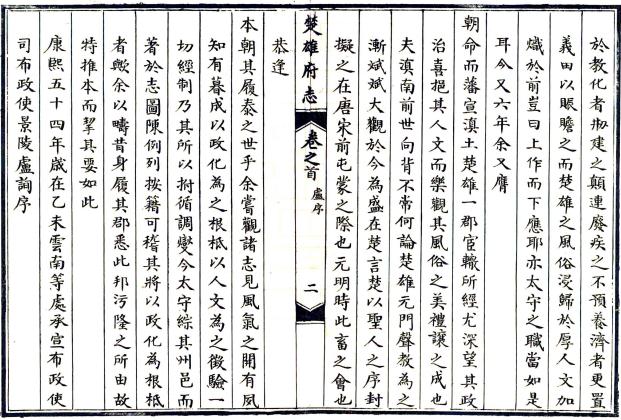 於教化者𢱢建之顛連癈疾之不預養濟者更置
義田以賑贍之而楚雄之風俗浸歸於厚人文加
熾於前豈曰上作而下應耶亦太守之職當如是
耳今又六年余又膺
朝命而藩宣滇土楚雄一郡宦轍所經尤深望其政
治喜挹其人文而樂觀其風俗之美禮讓之成也
夫滇南前世向背不常何論楚雄元門聲教為之
漸斌斌大觀於今為盛在楚言楚以聖人之序封
擬之在唐宋前屯蒙之際也元明時此畜之會也
恭逢
楚雄府志
卷之首
盧序
二
本朝其履泰之世乎余嘗觀諸志見風氣之開有夙
知有暮成以政化為之根柢以人文為之徵驗一
切經制乃其所以拊循調燮今太守綜其州邑而
著於志圖陳例列按籍可稽其將以政化為根柢
者歟余以疇昔身履其郡悉此邦污隆之所由故
特推本而挈其要如此
康熙五十四年歲在乙未雲南等處承宣布政使
司布政使景陵盧詢序